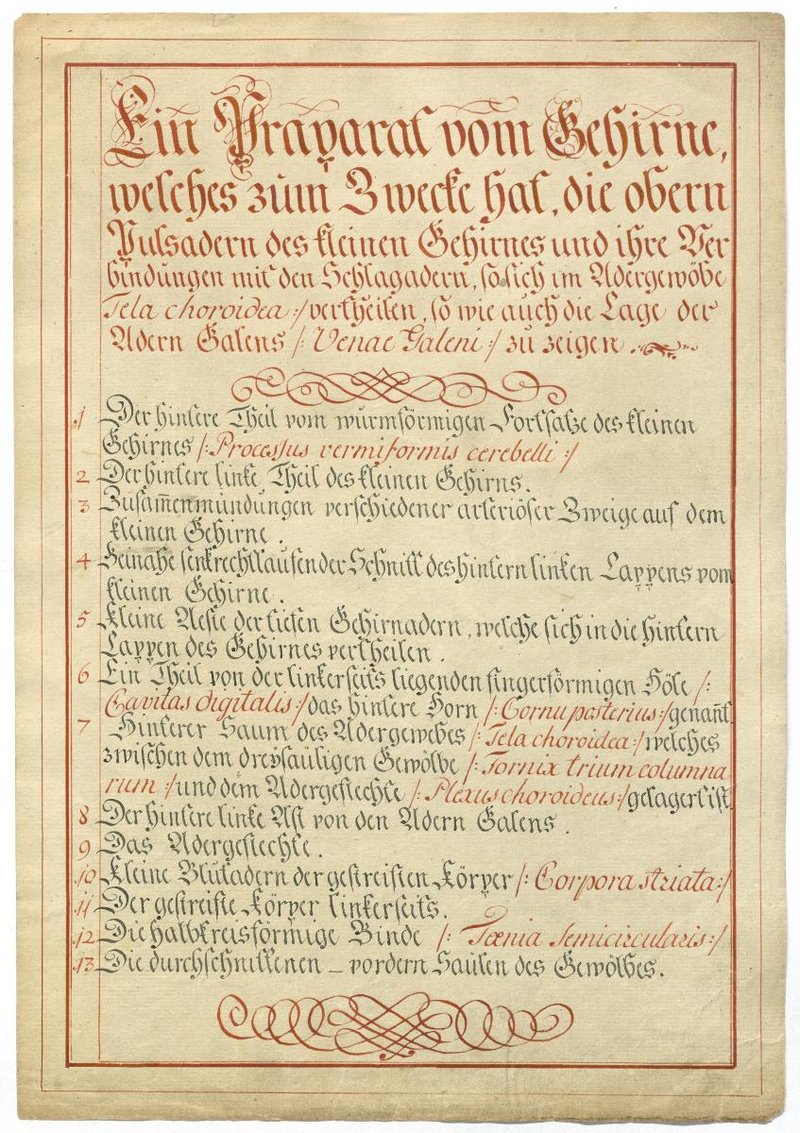 Ein Präparat vom Gehirne,
welches zum Zwecke hat, die obern
Pulsadern des kleinen Gehirnes und ihre Ver
bindungen mit den Schlagadern, so sich im Adergewöbe
Tela choroidea :/ vertheilen, so wie auch die Lage der
Adern Galens /: Venae Galeni :/ zu zeigen.
1 Der hintere Theil vom wurmförmigen Fortsatze des kleinen
Gehirnes /: Processus vermiformis cerebelli :/
2 Der hintere linke Theil des kleinen Gehirns.
3 Zusam̅enmündungen verschiedener arteriöser Zweige auf dem
kleinen Gehirne.
4 Beinahe senkrechtlaufender Schnitt des hintern linken Lappens vom
kleinen Gehirne.
5 Kleine Aeste der tiefen Gehirnadern, welche sich in die hintern
Lappen des Gehirnes vertheilen.
6 Ein Theil von der linkerseits liegenden fingerförmigen Höle /:
Cavitas digitalis :/ das hintere Horn /: Cornu posterius :/ genan̅t.
7 Hinterer Saum des Adergewebes /: Tela choroidea :/ welches
zwischen dem dreysäuligen Gewölbe /: Fornix trium columna
rum :/ und dem Adergeflechte /: Plexus choroideus :/ gelagert ist.
8 Der hintere linke Ast von den Adern Galens.
9 Das Adergeflechte.
10 Kleine Blutadern der gestreiften Körper /: Corpora striata :/
11 Der gestreifte Körper linkerseits.
12 Die halbkreisförmige Binde /: Tænia semicircularis :/
13 Die durchschnittenen – vordern Säulen des Gewölbes.